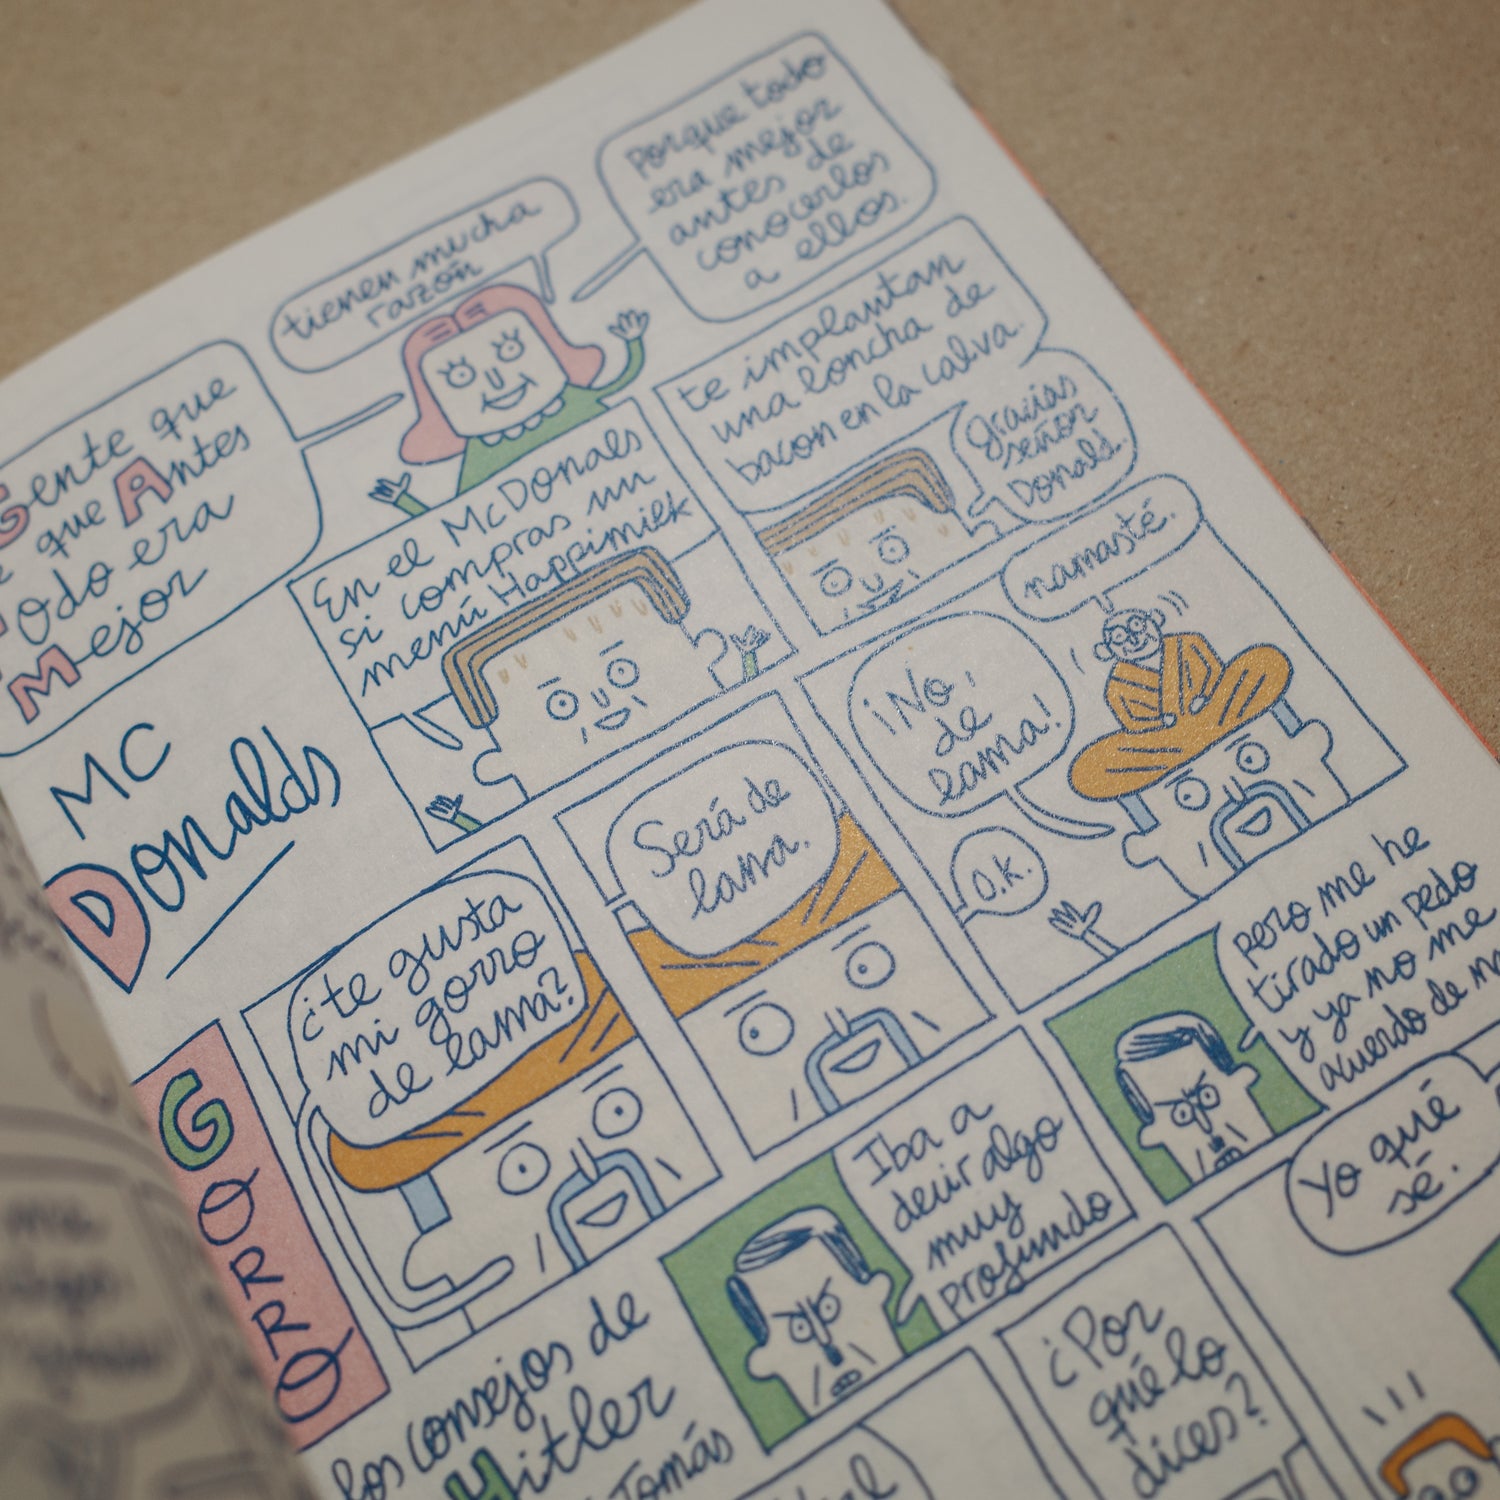 Gente que
que Antes
Todo era
Mejor
tienen mucha
razón
porque todo
era mejor
antes de
conocerlos
a ellos.
MC
Donalds
En el McDonals
si compras un
menú Happimilk
te implantan
una loncha de
bacon en la calva.
Gracias
señor
Donald.
GORRO
¿te gusta
mi gorro
de lama?
Será de
lana.
¡No,
de
lama!
namasté.
O.K.
los consejos de
Hitler
Tomás
Iba a
decir algo
muy
profundo
pero me he
tirado un pedo
y ya no me
acuerdo de
¿Por
qué lo
dices?
Yo qué
sé.